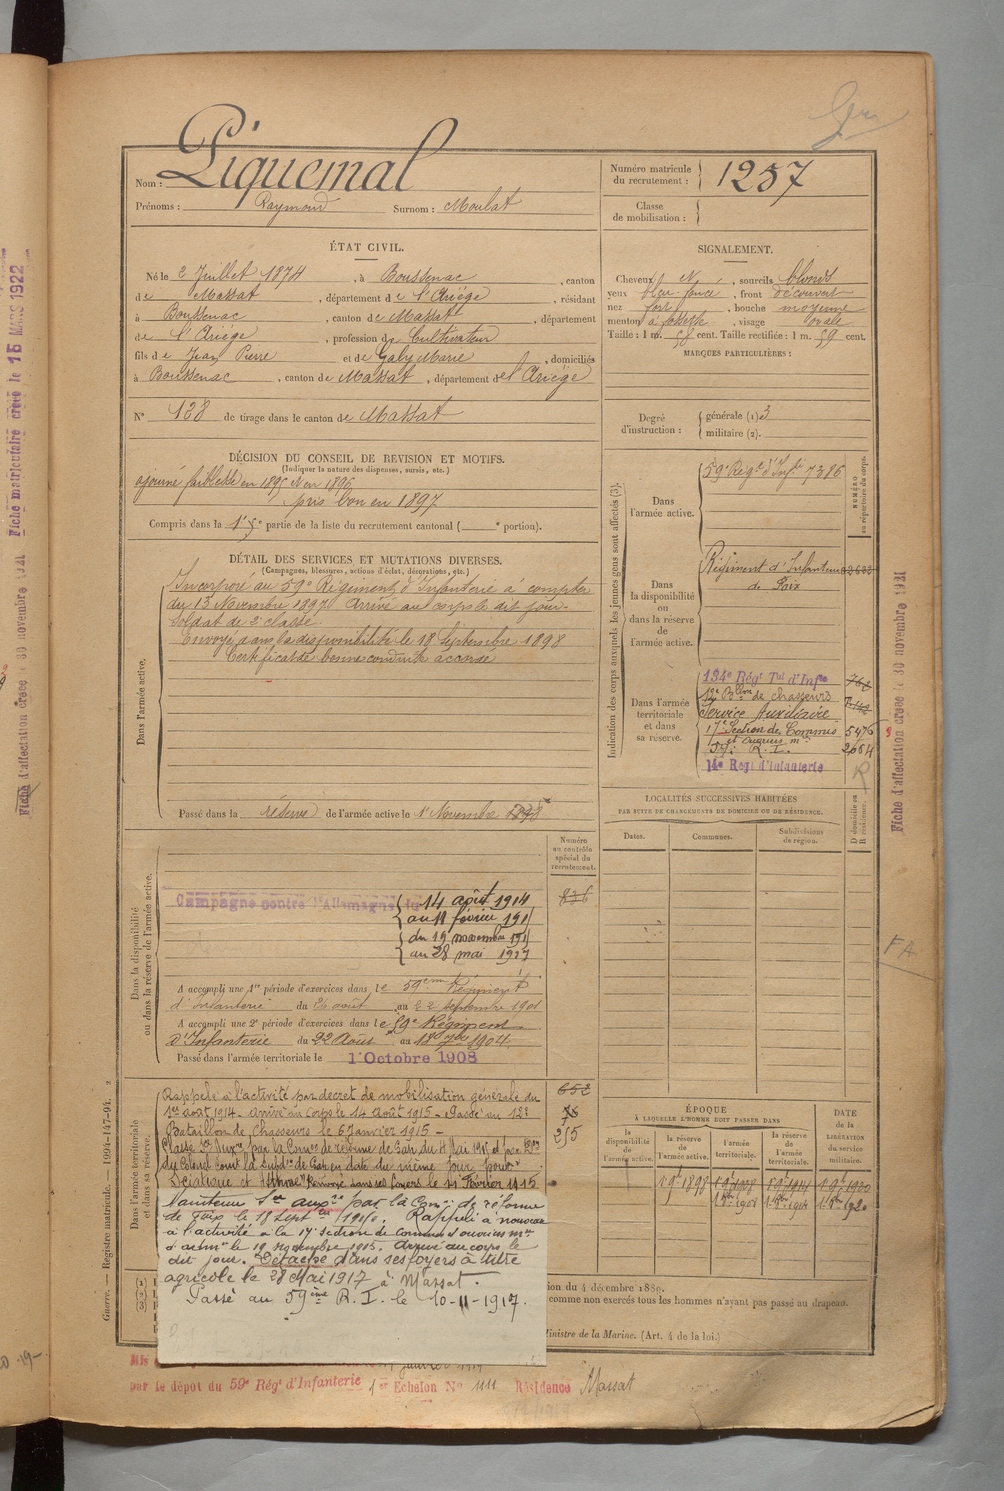 Nom : Piquemal
Prénoms : Raymond Surnom : Moulat
ÉTAT CIVIL.
Né le 2 Juillet 1874, à Boussenac, canton
de Massat, département de l'Ariége, résidant
à Boussenac, canton de Massat, département
de l'Ariége, profession de Cultivateur
fils de Jean Pierre et de Galy Marie, domiciliés
à Boussenac, canton de Massat, département de l'Ariége
N° 138 de tirage dans le canton de Massat
DÉCISION DU CONSEIL DE REVISION ET MOTIFS.
(Indiquer la nature des dispenses, sursis, etc.)
ajourné faiblesse en 1895 en 1896
pris bon en 1897
Compris dans la 1re partie de la liste du recrutement cantonal ( e portion).
DÉTAIL DES SERVICES ET MUTATIONS DIVERSES.
(Campagnes, blessures, actions d'éclat, décorations, etc.)
Dans l'armée active.
Incorporé au 59e Régiment d'Infanterie à compter
du 13 Novembre 1897. Arrivé au corps le dit jour.
Soldat de 2e classe.
Envoyé dans la disponibilité le 18 Septembre 1898
Certificat de bonne conduite accordé
Passé dans la réserve de l'armée active le 1er Novembre 1898
Dans la disponibilité
ou dans la réserve de l'armée active.
Numéro
au contrôle
spécial du
recrutement.
836
Campagne contre l'Allemagne du 14 août 1914
au 11 février 191
du 19 novembre 191
au 28 mai 1917
A accompli une 1re période d'exercices dans le 59eme Régiment
d'Infanterie du 26 août au 22 septembre 1901
A accompli une 2e période d'exercices dans le 59e Régiment
d'Infanterie du 22 Août au 18 7bre 1904.
Passé dans l'armée territoriale le 1 Octobre 1908
Dans l'armée territoriale
et dans sa réserve.
652
255
Rappelé à l'activité par décret de mobilisation générale du
1er août 1914. arrivé au Corps le 14 août 1915 - Passé au 12e
Bataillon de Chasseurs le 6 Janvier 1915 -
du Colonel
en date du même jour pour
Sciatique et Asthme" Renvoyé dans ses foyers le 11 Février 1915.
Maintenu Sce auxre par la Comon de réforme
de Foix le 18 Septbre 1915. Rappelé à nouveau
à l'activité à la 17e section de Commis et ouvriers mres
d'admon le 19 novembre 1915. Arrivé au corps le
dit jour. Détaché dans ses foyers à titre
agricole le 28 Mai 1917 à Massat.
Passé au 59ème R.I. le 10-11-1917.
Numéro matricule
du recrutement : 1257
Classe
de mobilisation :
SIGNALEMENT.
Cheveux N, sourcils blonds
yeux bleu foncé, front découvert
nez fort, bouche moyenne
menton à fossette, visage ovale
Taille : 1 m. 58 cent. Taille rectifiée : 1 m. 59 cent.
MARQUES PARTICULIÈRES :
Degré
d'instruction :
générale (1) 3
militaire (2).
Indication des corps auxquels les jeunes gens sont affectés (3).
NUMÉRO
au répertoire du corps.
Dans
l'armée active.
59e Régt d'Infie 7386
Dans
la disponibilité
ou
dans la réserve
de
l'armée active.
Régiment d'Infanterie
de Foix
Dans l'armée
territoriale et dans
sa réserve.
134e Régt Tal d'Infie
12e Bllon de chasseurs
Service Auxiliaire
17e Section de Commis 5476
et ouvriers mres
59e R.I. 2664
14e Regt d'Infanterie
R
LOCALITÉS SUCCESSIVES HABITÉES
PAR SUITE DE CHANGEMENTS DE DOMICILE OU DE RÉSIDENCE.
Dates. Communes. Subdivisions
de région.
D domicile ou
R résidence.
ÉPOQUE
À LAQUELLE L'HOMME DOIT PASSER DANS
la
disponibilité
de
l'armée active.
la réserve
de
l'armée active.
l'armée
territoriale.
la réserve
de
l'armée
territoriale.
DATE
de la
LIBÉRATION
du service
militaire.
(1)
(2)
(3)
ion du 4 décembre 1889.
comme non exercés tous les hommes n'ayant pas passé au drapeau.
Ministre de la Marine. (Art. 4 de la loi.)
Mis
janvier 1919
par le dépot du 59e Régt d'Infanterie 1er Echelon No 1111 Résidence Massat
Guerre. — Registre matricule. — 1994-147-94.
Fiche matriculaire créée le 15 MARS 1922
Fiche d'affectation créée le 30 novembre 1921
Fiche d'affectation créée le 30 novembre 1921
FA